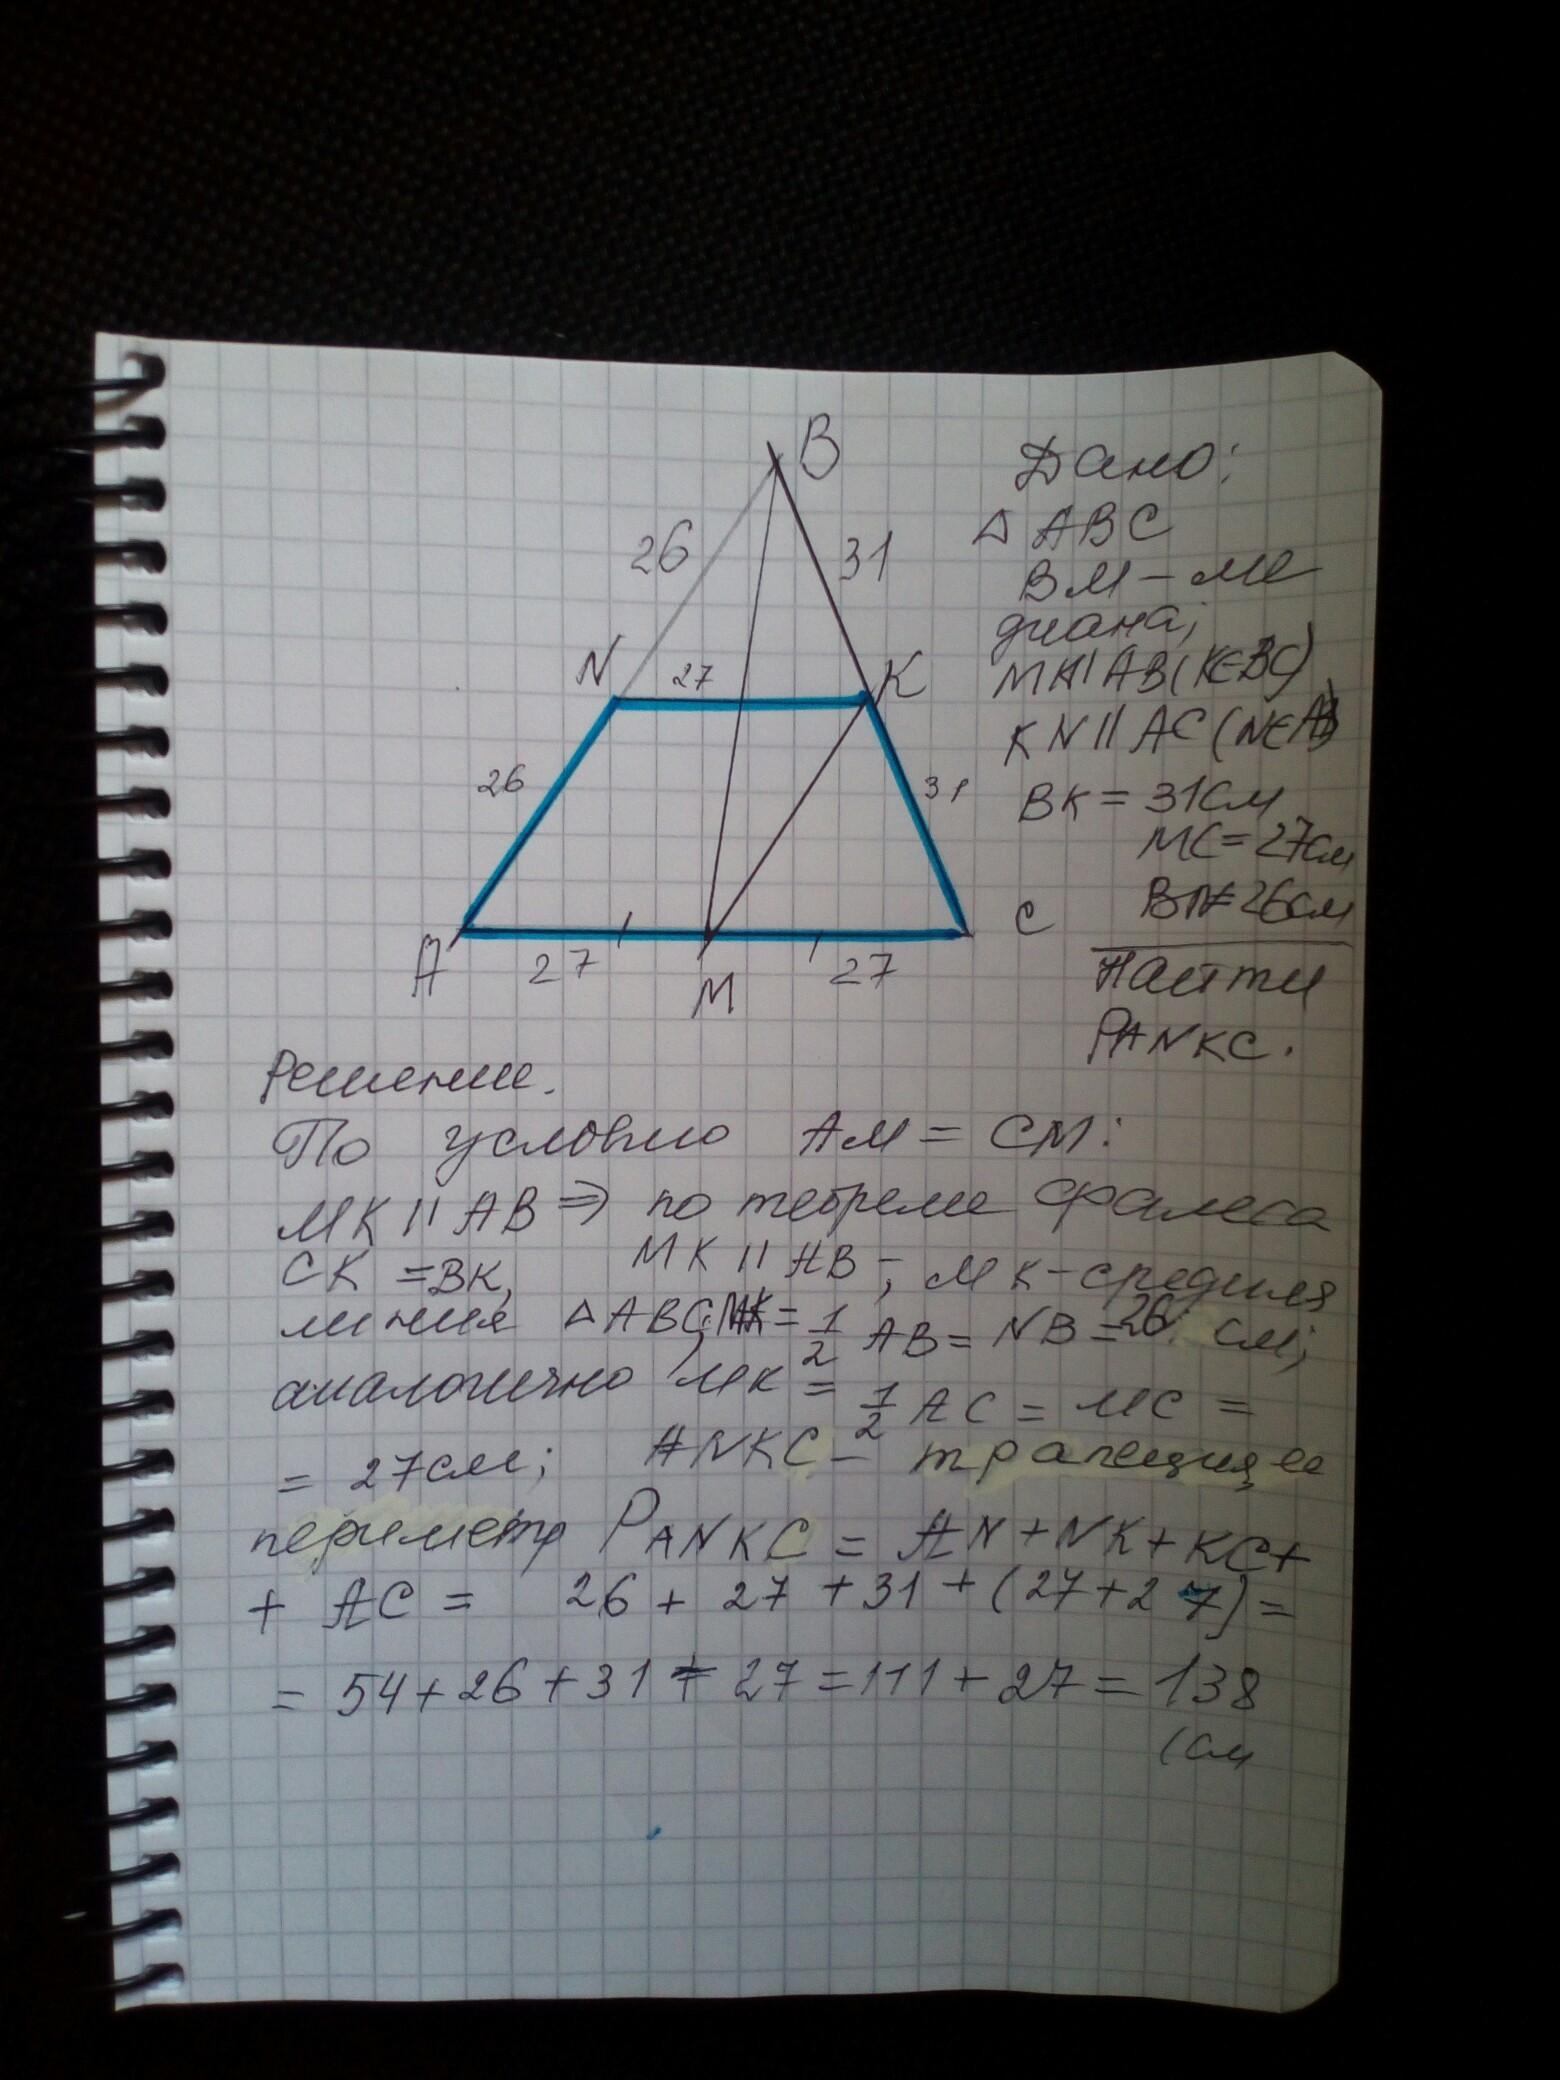 B
26
31
N
27
K
26
31
A
27
M
27
C
Дано:
△ ABC
BM – ме
диана;
MK || AB (K∈BC)
KN || AC (N∈AB)
BK = 31см
MC = 27см
BN = 26см
Найти
PANKC.
Решение.
По условию AM = CM:
MK || AB ⇒ по теореме Фалеса
CK = BK, MK || AB –; MK – средняя
линия △ ABC; MK = 1/2 AB = NB = 26 см;
аналогично MK = 1/2 AC = MC =
= 27см; ANKC – трапеция ее
периметр PANKC = AN + NK + KC +
+ AC = 26 + 27 + 31 + (27 + 27) =
= 54 + 26 + 31 + 27 = 111 + 27 = 138
(см